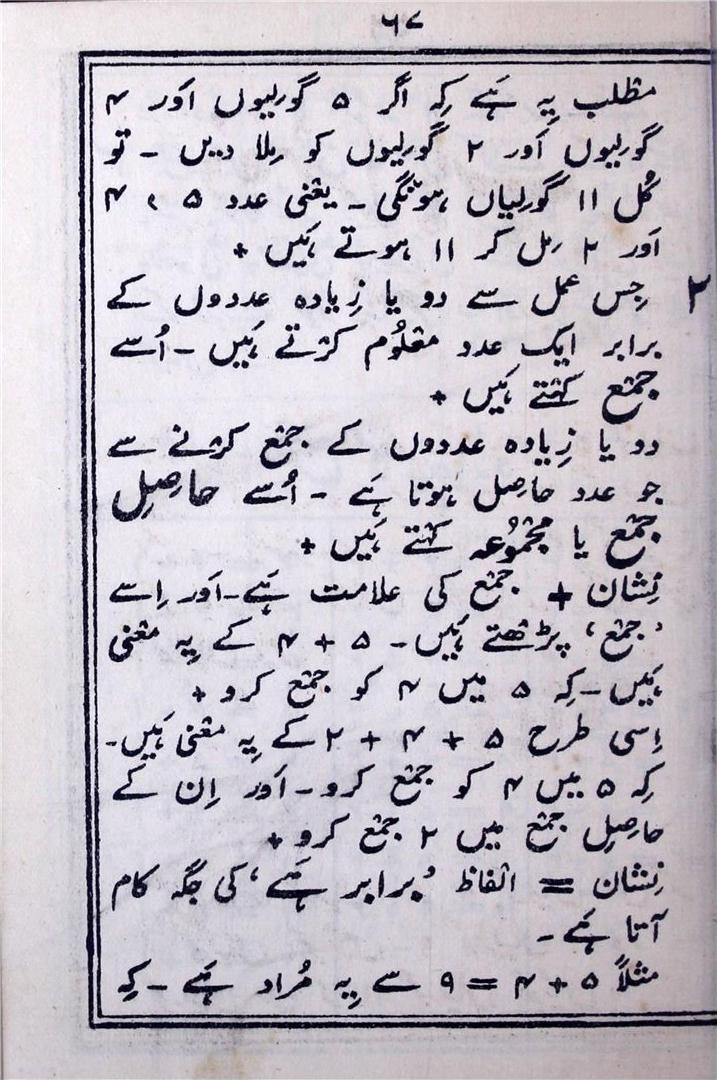 ۶۷
مطلب یِہ ہَے کِہ اگر ۵ گولیوں اَور ۴
گولیوں اَور ۲ گولیوں کو مِلا دیں ۔ تو
کُل ۱۱ گولیاں ہونگی ۔ یعنی عدد ۵ ، ۴
اَور ۲ مِل کر ۱۱ ہوتے ہَیں +
۲ جِس عمل سے دو یا زِیادہ عددوں کے
برابر ایک عدد معلُوم کرتے ہَیں ۔ اُسے
جمع کہتے ہَیں +
دو یا زِیادہ عددوں کے جمع کرنے سے
جو عدد حاصِل ہوتا ہَے ۔ اُسے حاصِلِ
جمع یا مجمُوُعہ کہتے ہَیں +
نِشان + جمع کی علامت ہَے ۔ اَور اِسے
’جمع‘ پڑھتے ہَیں ۔ ۵ + ۴ کے یِہ معنی
ہَیں ۔ کِہ ۵ میں ۴ کو جمع کرو +
اِسی طرح ۵ + ۴ + ۲ کے یِہ معنی ہَیں ۔
کِہ ۵ میں ۴ کو جمع کرو ۔ اَور اِن کے
حاصِلِ جمع میں ۲ جمع کرو +
نِشان = الفاظ ’برابر ہَے‘ کی جگہ کام
آتا ہَے ۔
مثلاً ۵ + ۴ = ۹ سے یِہ مُراد ہَے ۔ کِہ